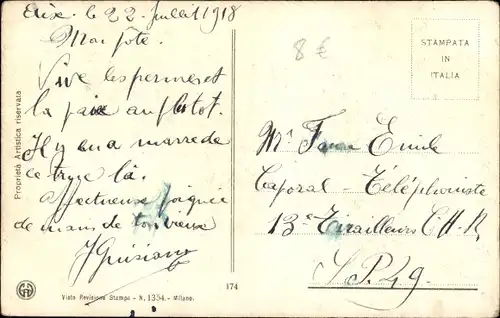 le 22 Juillet 1918
Mon pote.
Vive les perms et
la paix au plutot.
Il y en a marre de
ce truc là.
Affectueuse poignée
de mains de ton vieux
8 €
STAMPATA
IN
ITALIA
Mr Emile
Caporal - Téléphoniste
13e Tirailleurs
S.P. 49.
Proprietà Artistica riservata
174
Visto Revisione Stampa - N. 1354. - Milano.